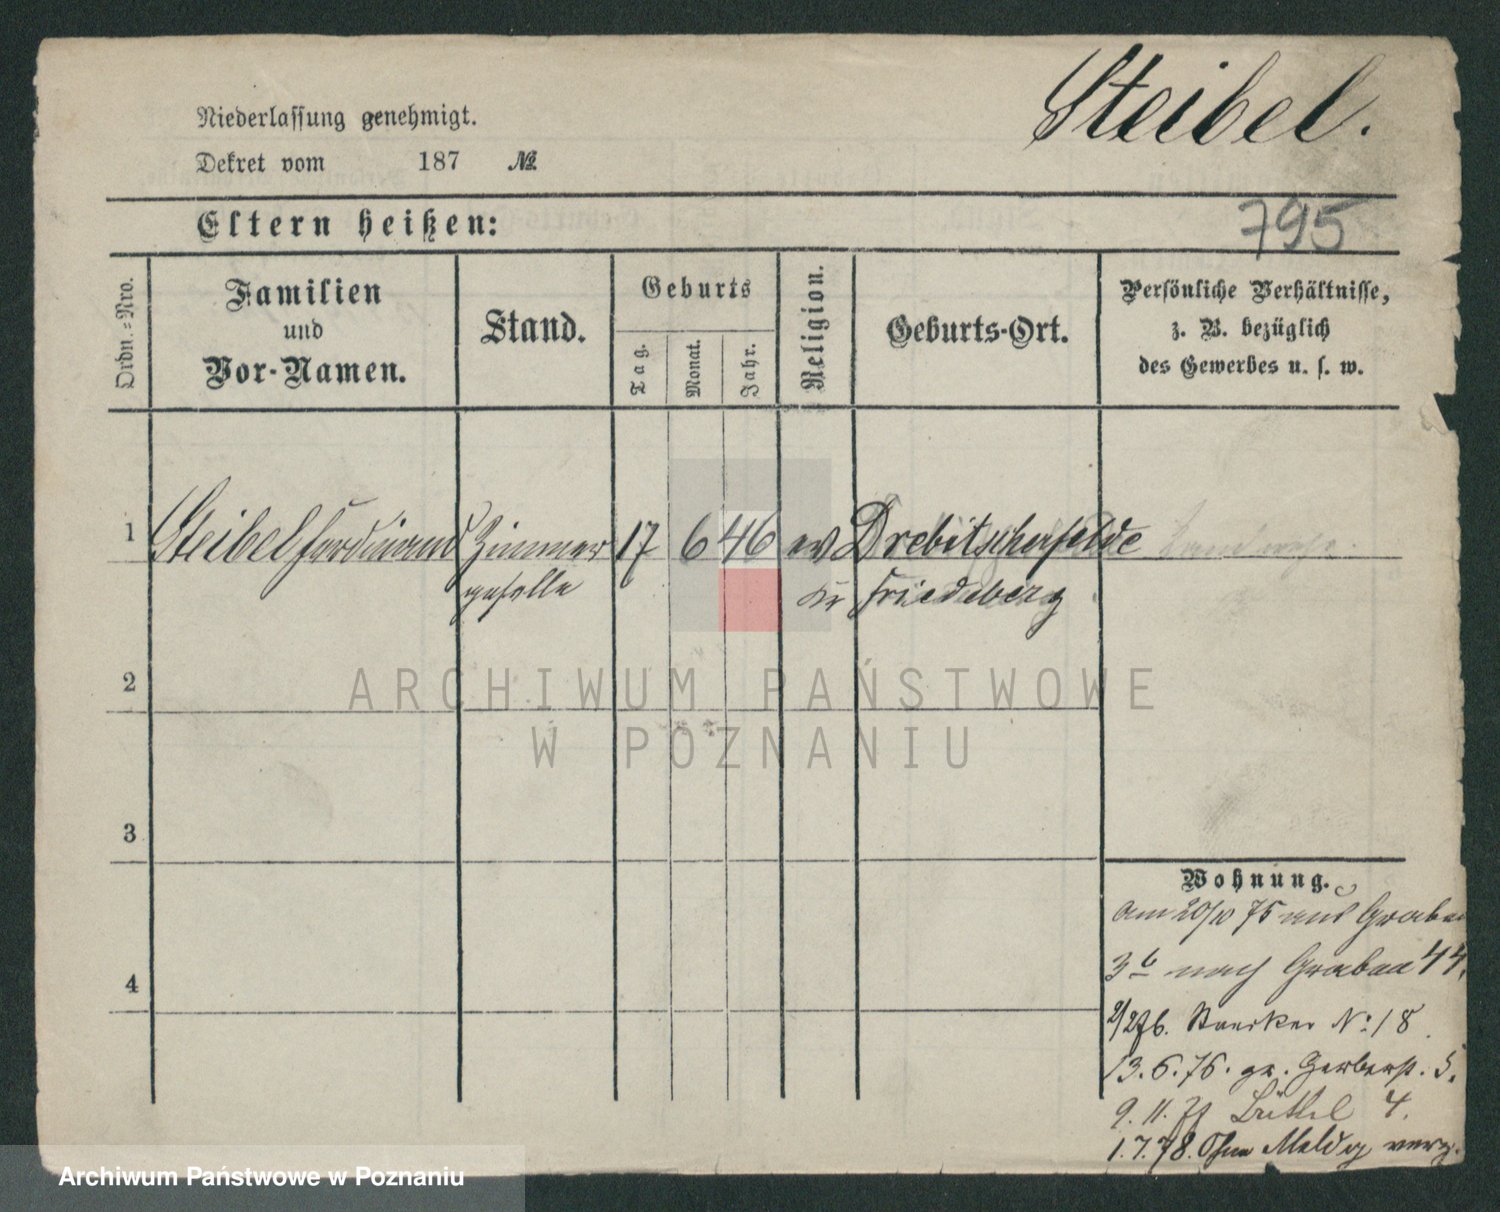 Steibel.
Niederlassung genehmigt.
Dekret vom 187 №
Eltern heißen:
795
Ordn.=Nro.
Familien
und
Vor-Namen.
Stand.
Geburts
Tag.
Monat.
Jahr.
Religion.
Geburts-Ort.
Persönliche Verhältnisse,
z. B. bezüglich
des Gewerbes u. s. w.
1 Steibel Ferdinand Zimmer 17 6 46 ev Drebitscherfelde
geselle Kr Friedeberg
2
ARCHIWUM PAŃSTWOWE
W POZNANIU
3
Wohnung.
am 20/10 75 aus Graben
3b nach Graben 44.
4
2/2 76. No: 18
13.6.76. gr. Gerberst. 5.
9.11. 4.
1.7.78. Ohne Meldg verz.
Archiwum Państwowe w Poznaniu